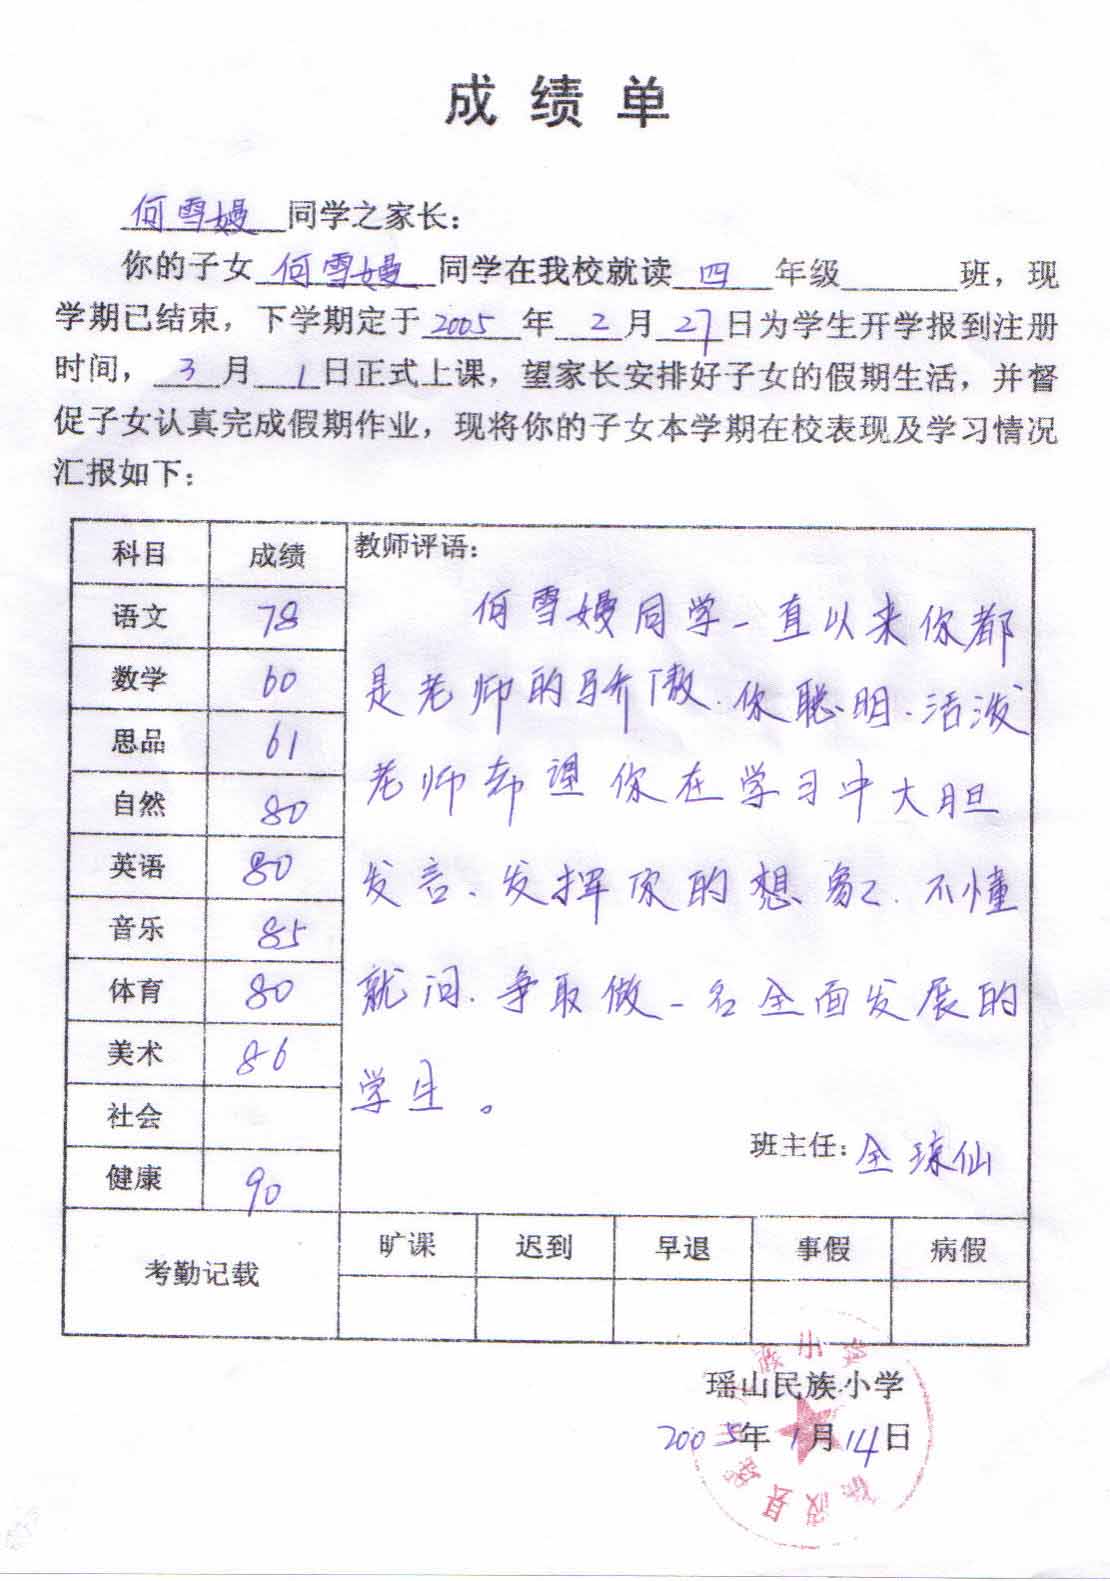 成绩单
何雪嫚同学之家长：
你的子女何雪嫚同学在我校就读四年级______班，现
学期已结束，下学期定于2005年2月27日为学生开学报到注册
时间，3月1日正式上课，望家长安排好子女的假期生活，并督
促子女认真完成假期作业，现将你的子女本学期在校表现及学习情况
汇报如下：
科目 成绩 教师评语：
语文 78
数学 60
思品 61
自然 80
英语 80
音乐 85
体育 80
美术 86
社会
健康 90
何雪嫚同学一直以来你都
是老师的骄傲.你聪明.活泼
老师希望你在学习中大胆
发言、发挥你的想象.不懂
就问.争取做一名全面发展的
学生。
班主任：全琼仙
考勤记载 旷课 迟到 早退 事假 病假
瑶山民族小学
2005年1月14日